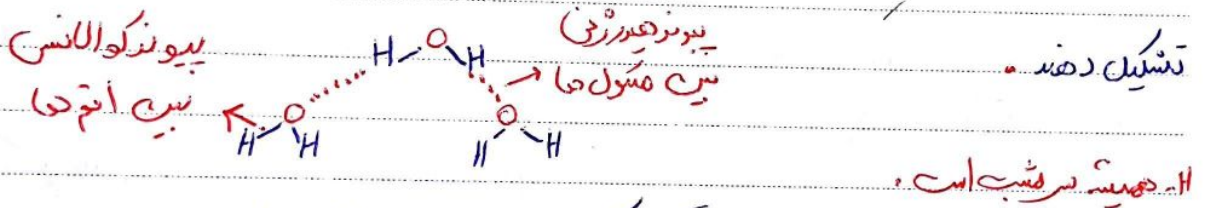 تشکیل دهند.
پیوند هیدروژنی
بین مولکول ها
پیوند کووالانسی
بین اتم ها
H O H
O H H
O H H
H- همیشه سر مثبت است.